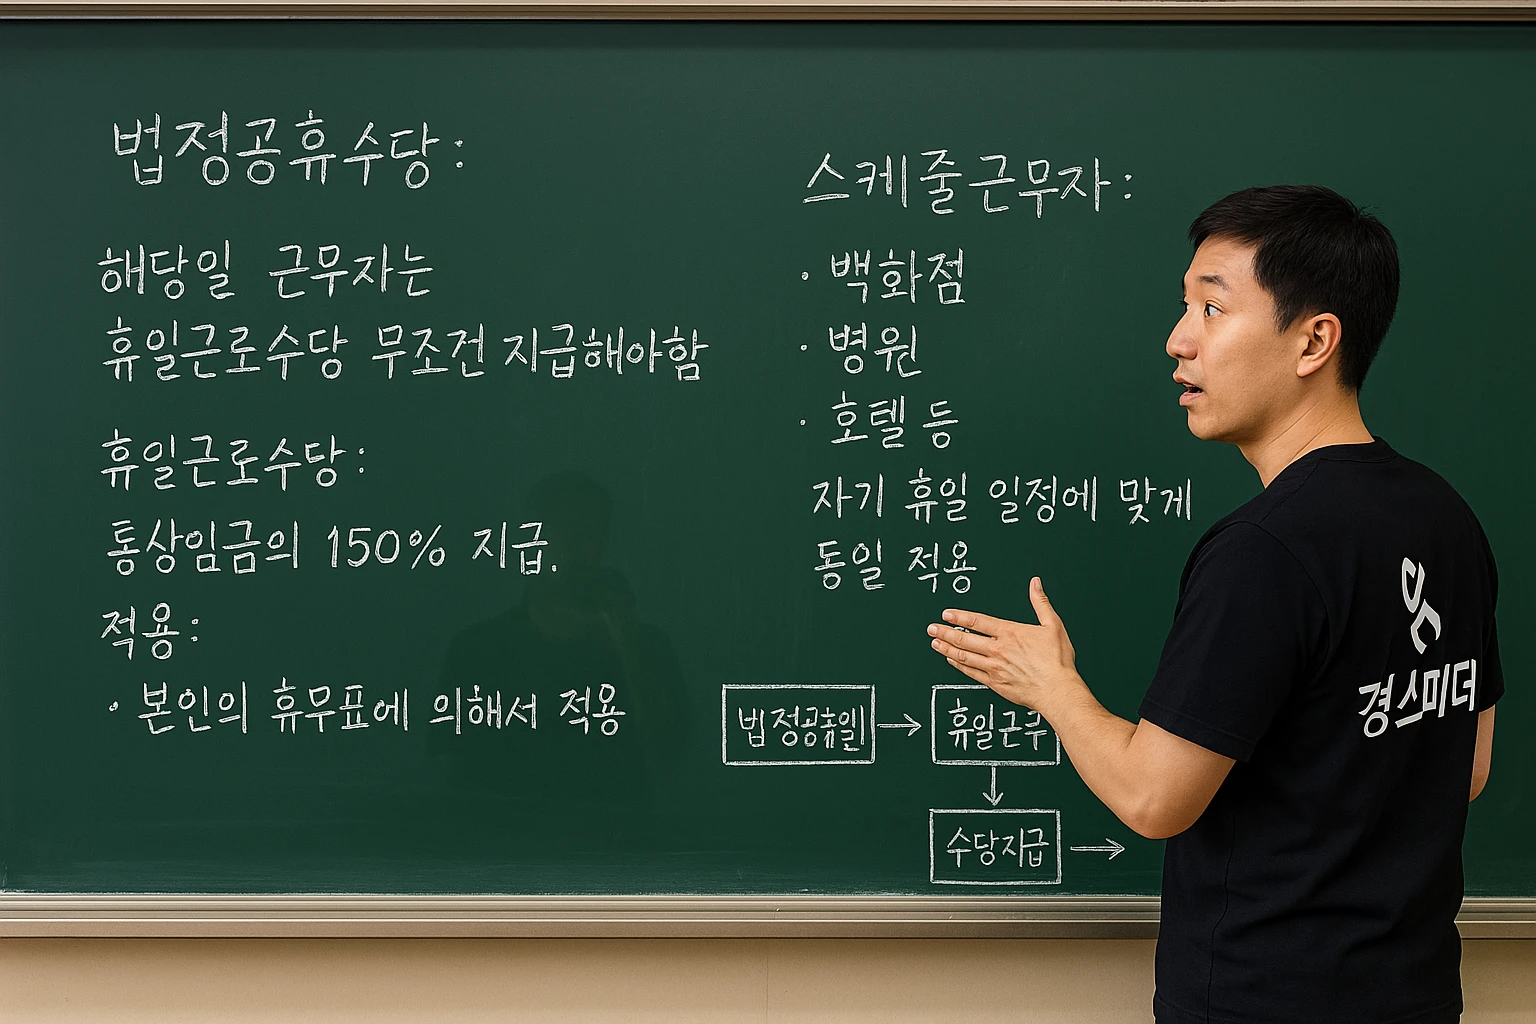 법정공휴수당:
해당일 근무자는
휴일근로수당 무조건 지급해야함
휴일근로수당:
통상임금의 150% 지급.
적용:
· 본인의 휴무표에 의해서 적용
스케줄근무자:
· 백화점
· 병원
· 호텔 등
자기 휴일 일정에 맞게
동일 적용
법정공휴일 →
휴일근무
수당지급 →
경스미더